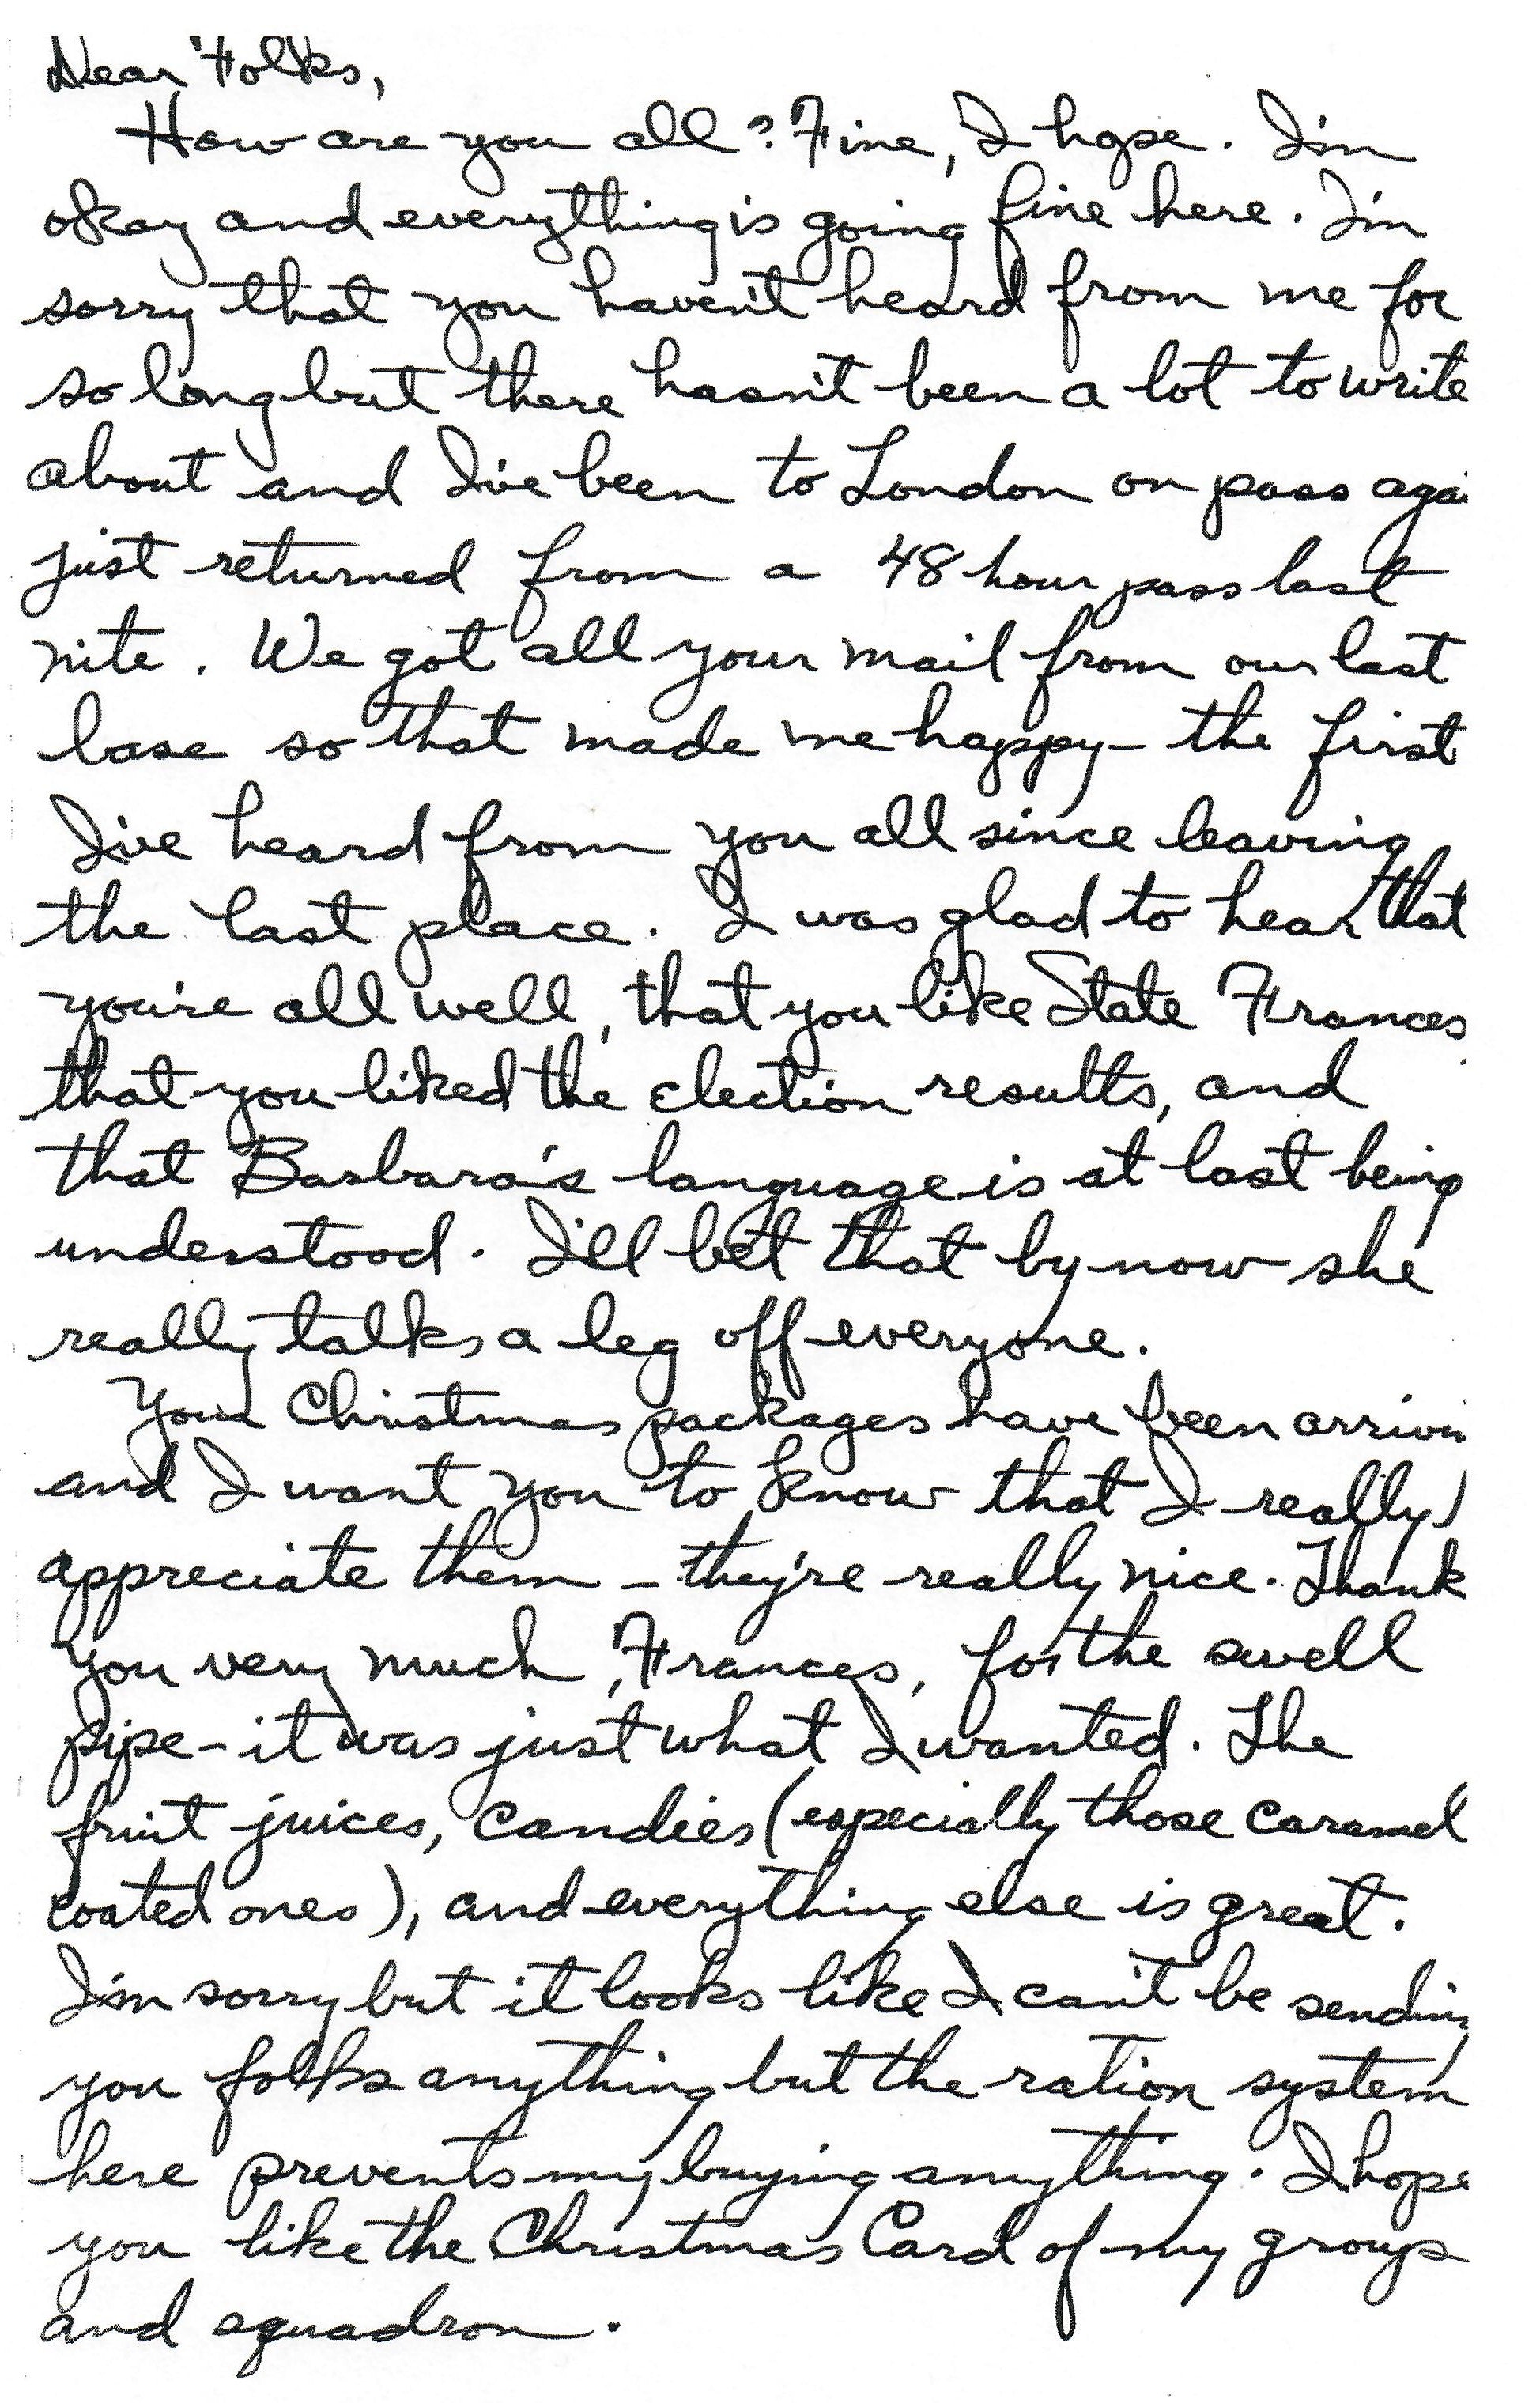 Dear Folks,
How are you all? Fine, I hope. I'm
okay and everything is going fine here. I'm
sorry that you haven't heard from me for
so long but there hasn't been a lot to write
about and I've been to London on pass agai
just returned from a 48 hour pass last
nite. We got all your mail from our last
base so that made me happy - the first
I've heard from you all since leaving
the last place. I was glad to hear that
you're all well, that you like State Frances
that you liked the election results, and
that Barbara's language is at last being
understood. I'll bet that by now she
really talks a leg off everyone.
Your Christmas packages have been arrivin
and I want you to know that I really
appreciate them - they're really nice. Thank
you very much, Frances, for the swell
pipe - it was just what I wanted. The
fruit juices, candies (especially those caramel
coated ones), and everything else is great.
I'm sorry but it looks like I can't be sending
you folks anything but the ration system
here prevents my buying anything. I hope
you like the Christmas Card of my group
and squadron.